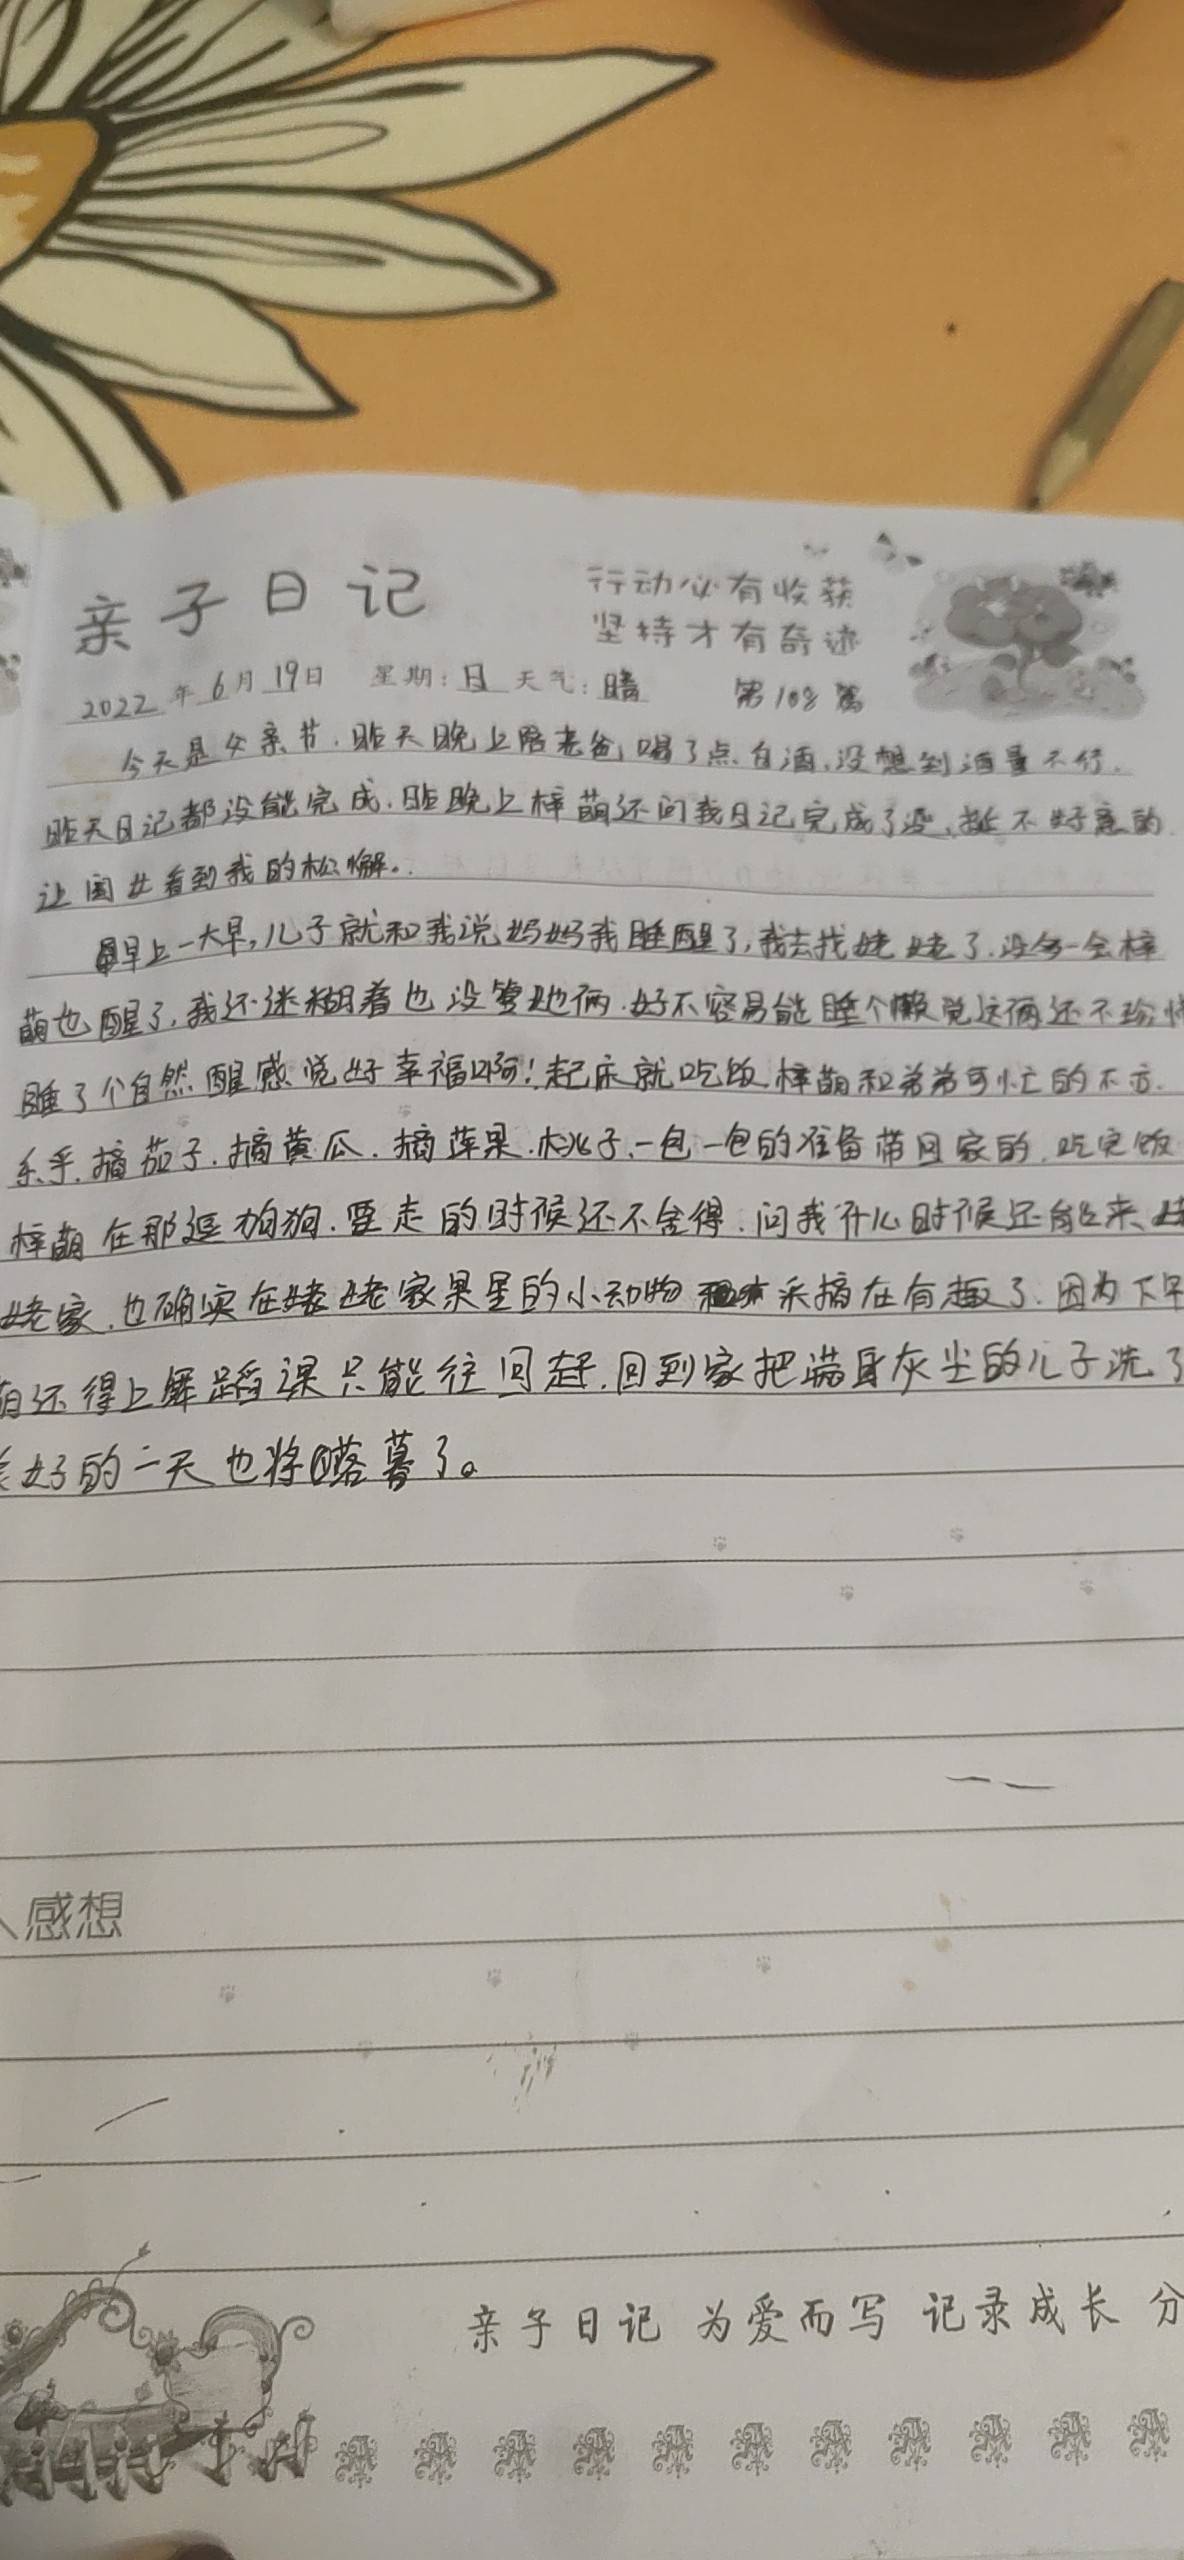 亲子日记
行动必有收获
坚持才有奇迹
2022年6月19日 星期:日 天气:晴 第108篇
今天是父亲节.昨天晚上陪老爸喝了点白酒,没想到酒量不行.
昨天日记都没能完成.昨晚上梓萌还问我日记完成了没,挺不好意的
让闺女看到我的松懈.
早上一大早,儿子就和我说妈妈我睡醒了,我去找姥姥了.没多一会梓
萌也醒了,我还迷糊着也没管她俩.好不容易能睡个懒觉这俩还不珍惜
睡了个自然醒感觉好幸福啊!起床就吃饭.梓萌和弟弟可忙的不亦.
乐乎.摘茄子.摘黄瓜.摘苹果.桃子.一包一包的准备带回家的.吃完饭
梓萌在那逗狗狗.要走的时候还不舍得.问我什么时候还能来.姥
姥家.也确实在姥姥家果星的小动物 采摘在有趣了.因为下午
萌还得上舞蹈课只能往回赶.回到家把满身灰尘的儿子洗了
美好的一天也将落幕了。
人感想
亲子日记 为爱而写 记录成长 分